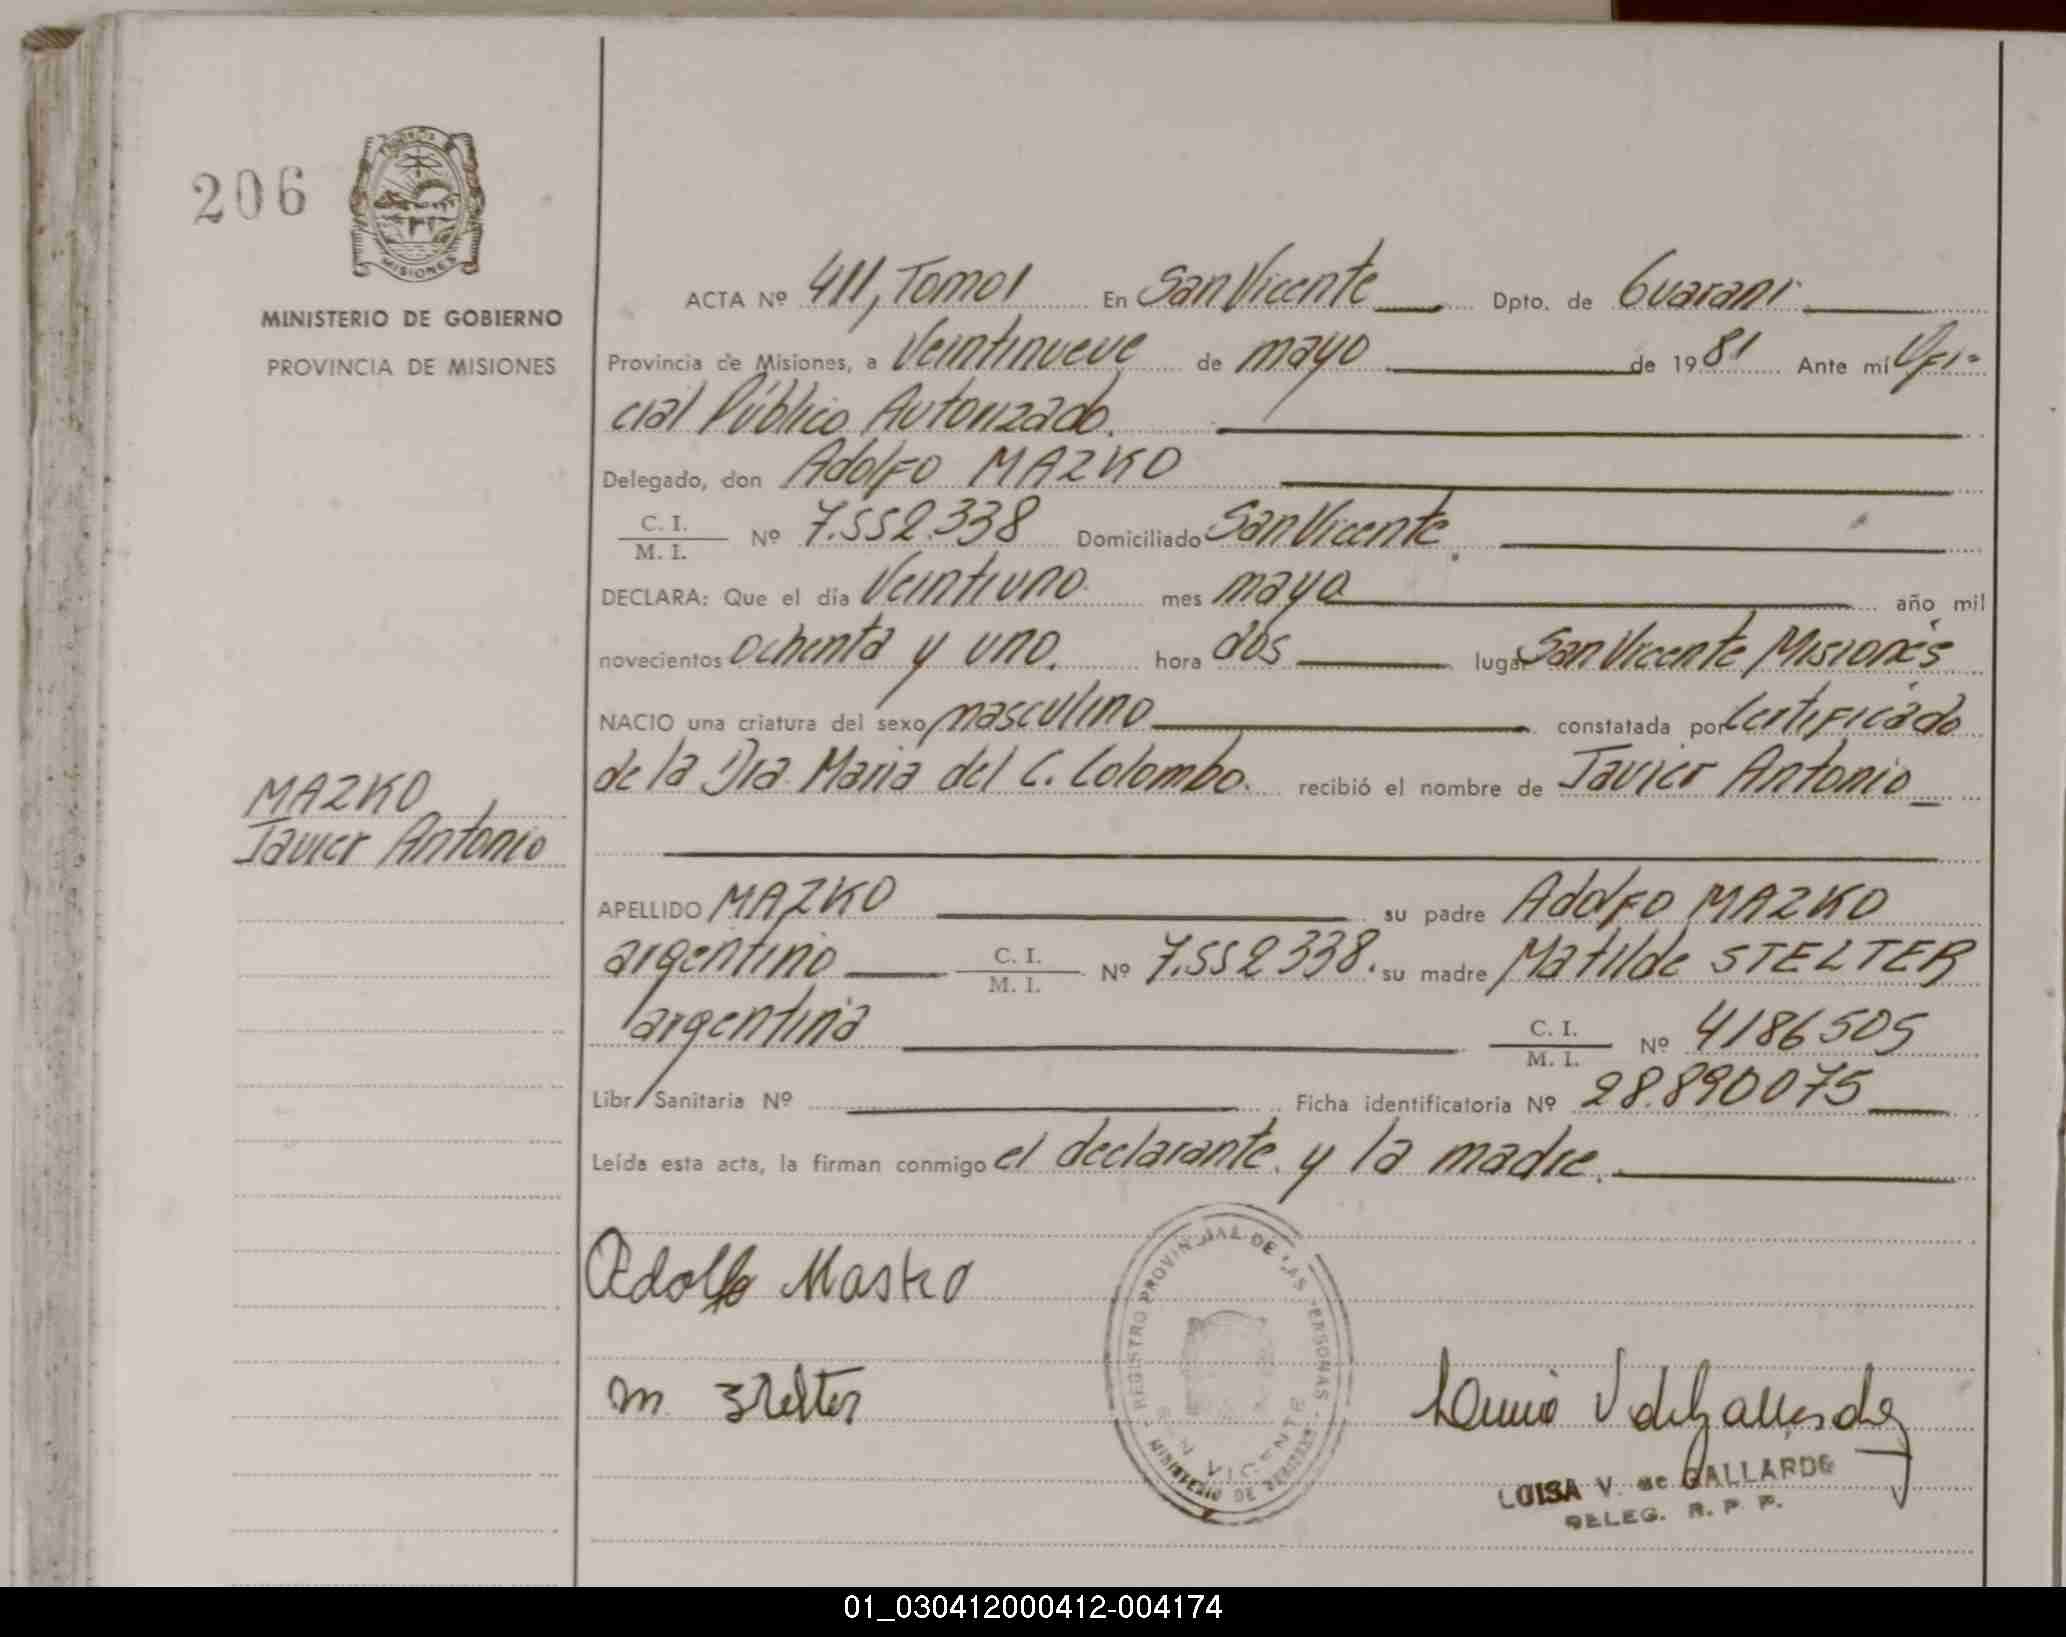 206
MISIONES
MINISTERIO DE GOBIERNO
PROVINCIA DE MISIONES
ACTA Nº 411, Tomo I En San Vicente Dpto. de Guaraní
Provincia de Misiones, a Veintinueve de mayo de 1981 Ante mí Ofi-
cial Público Autorizado.
Delegado, don Adolfo MAZKO
C. I.
M. I. Nº 7.552.338 Domiciliado San Vicente.
DECLARA: Que el día Veintiuno mes mayo año mil
novecientos ochenta y uno. hora dos lugar San Vicente Misiones
NACIO una criatura del sexo masculino constatada por Certificado
de la Dra. Maria del C. Colombo. recibió el nombre de Javier Antonio
MAZKO
Javier Antonio
APELLIDO MAZKO su padre Adolfo MAZKO
argentino C. I.
M. I. Nº 7.552338. su madre Matilde STELTER
argentina C. I.
M. I. Nº 4186505
Libr Sanitaria Nº Ficha identificatoria Nº 28.890075
Leída esta acta, la firman conmigo el declarante y la madre.
Adolfo Masko
M Stelter
REGISTRO PROVINCIAL DE LAS PERSONAS
SAN VICENTE
MINISTERIO DE GOBIERNO
V de Gallardo
LUISA V. de GALLARDO
DELEG. R. P. P.
01_030412000412-004174